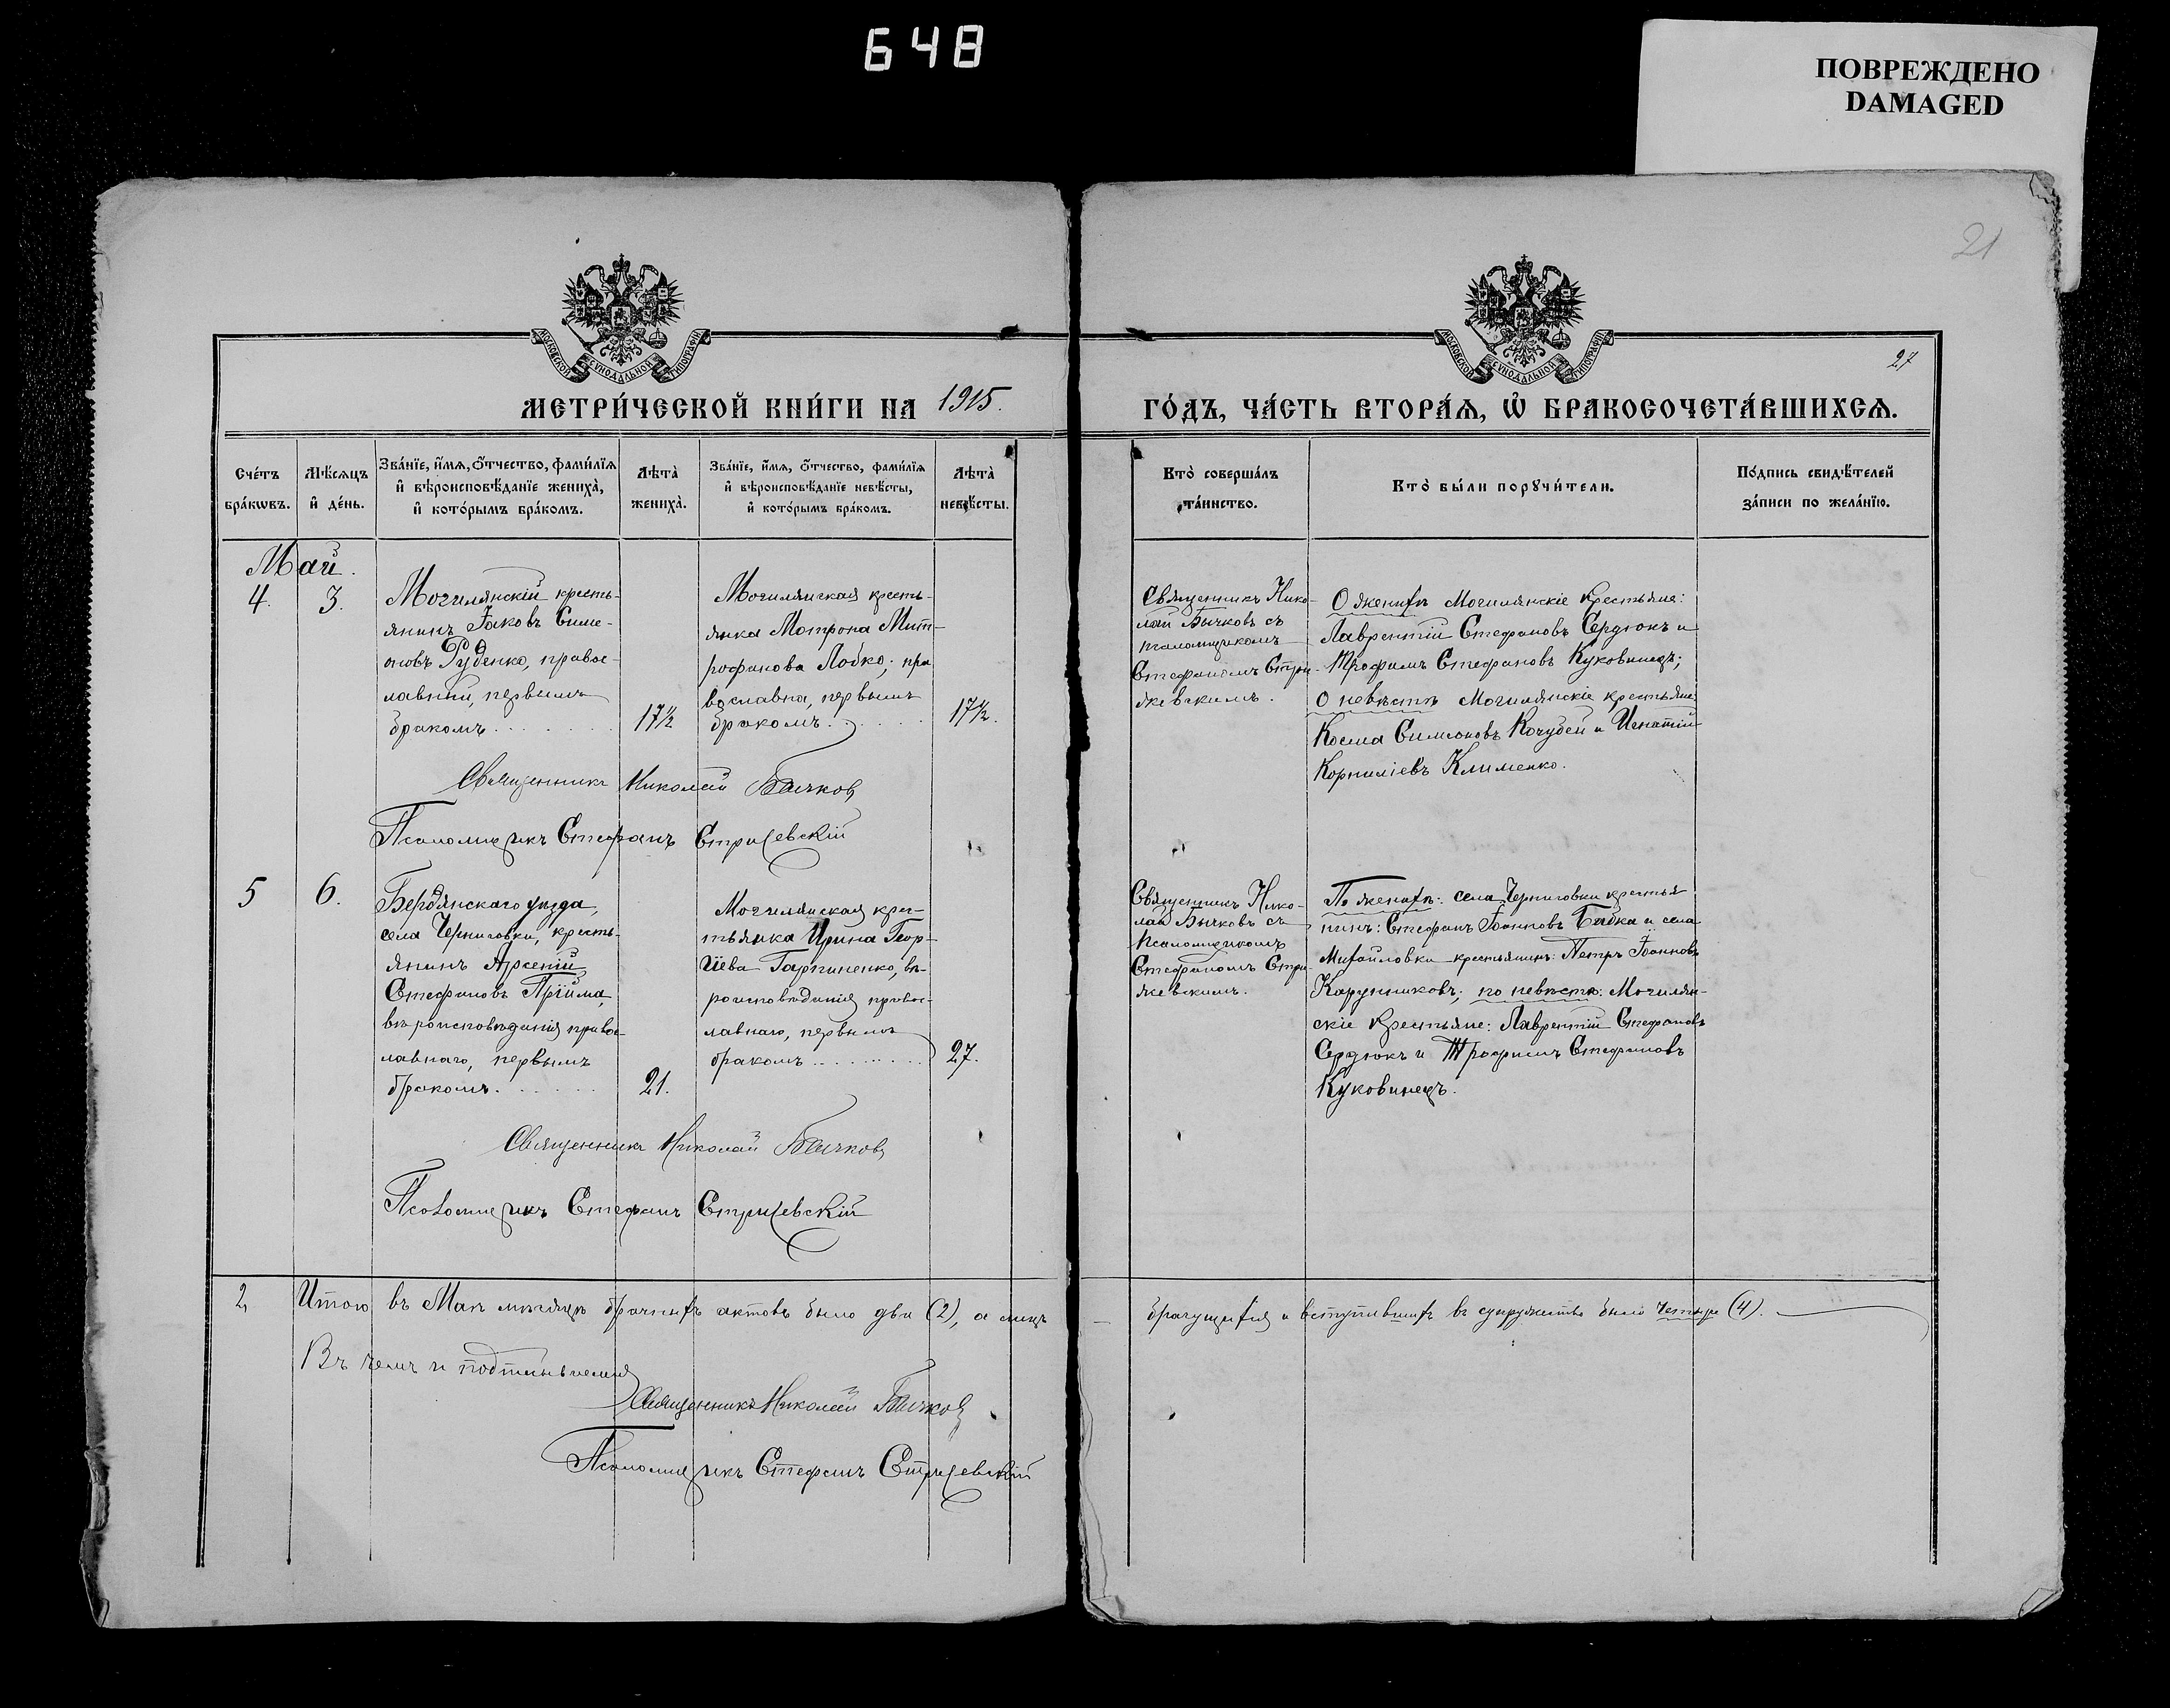 648
ПОВРЕЖДЕНО
DAMAGED
21
МОСКОВСКОЙ СѴНОДАЛЬНОЙ ТИПОГРАФІИ
МОСКОВСКОЙ СѴНОДАЛЬНОЙ ТИПОГРАФІИ
27
МЕТРИ́ЧЕСКОЙ КНИ́ГИ НА 1915.
ГО́ДЪ, ЧА́СТЬ ВТОРА́Я, Ѡ҆ БРАКОСОЧЕТА́ВШИХСЯ.
Сче́тъ
бра́кωвъ.
Мѣ́сяцъ
и҆ де́нь.
Зва́нїе, и҆́мя, ѻ҆́тчество, фами́лїя
и҆ вѣроисповѣ́данїе жениха̀,
и҆ кото́рымъ бра́комъ.
Лѣта̀
жениха̀.
Зва́нїе, и҆́мя, ѻ҆́тчество, фами́лїя
и҆ вѣроисповѣ́данїе невѣ́сты,
и҆ кото́рымъ бра́комъ.
Лѣта̀
невѣ́сты.
Кто̀ соверша́лъ
та́инство.
Кто̀ бы́ли порꙋчи́тели.
По́дпись свидѣ́телей
за́писи по жела́нїю.
Май.
4.
3.
Могилянскій кресть-
янинъ Іаковъ Симе-
оновъ Руденко, правос-
лавный, первымъ
бракомъ.......
17½
Могилянская кресть-
янка Мотрона Мит-
рофанова Лобко, пра
вославна, первымъ
бракомъ.......
17½.
Священникъ Нико-
лай Бычковъ съ
псаломщикомъ
Стефаномъ Стри-
жевскимъ.
О женихѣ Могилянскіе крестьяне:
Лаврентій Стефановъ Сердюкъ и
Трофимъ Стефановъ Куковинецъ;
О невѣстѣ Могилянскіе крестьяне
Косма Симеоновъ Кочубей и Игнатій
Корниліевъ Клименко.
Священникъ Николай Бычковъ
Псаломщикъ Стефанъ Стрижевскій
5
6.
Бердянскаго уѣзда,
села Черниговки, кресть-
янинъ Арсеній
Стефановъ Пріима,
вѣроисповѣданія правос-
лавнаго, первымъ
бракомъ.......
21.
Могилянская крес-
тьянка Ирина Геор-
гіева Гарпиненко, вѣ-
роисповѣданія правос-
лавнаго, первымъ
бракомъ.........
27.
Священникъ Нико-
лай Бычковъ съ
псаломщикомъ
Стефаномъ Стри-
жевскимъ.
По женихѣ: села Черниговки крестья
нинъ: Стефанъ Іоанновъ Бабка и села
Михайловки крестьянинъ: Петръ Іоанновъ
Карунниковъ; по невѣстѣ: Могилян-
скіе крестьяне: Лаврентій Стефановъ
Сердюкъ и Трофимъ Стефановъ
Куковинецъ.
Священникъ Николай Бычковъ
Псаломщикъ Стефанъ Стрижевскій
2
Итого въ Маѣ мѣсяцѣ брачныхъ актовъ было два (2), а лицъ
брачущихся и вступившихъ въ супружество было четыре (4).
Въ чемъ и подписуемся
Священникъ Николай Бычковъ
Псаломщикъ Стефанъ Стрижевскій